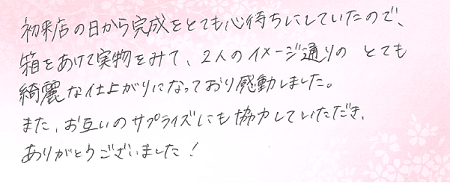 初来店の日から完成をとても心待ちにしていたので、
箱をあけて実物をみて、2人のイメージ通りの とても
綺麗な仕上がりになっており感動しました。
また、お互いのサプライズにも協力していただき、
ありがとうございました！